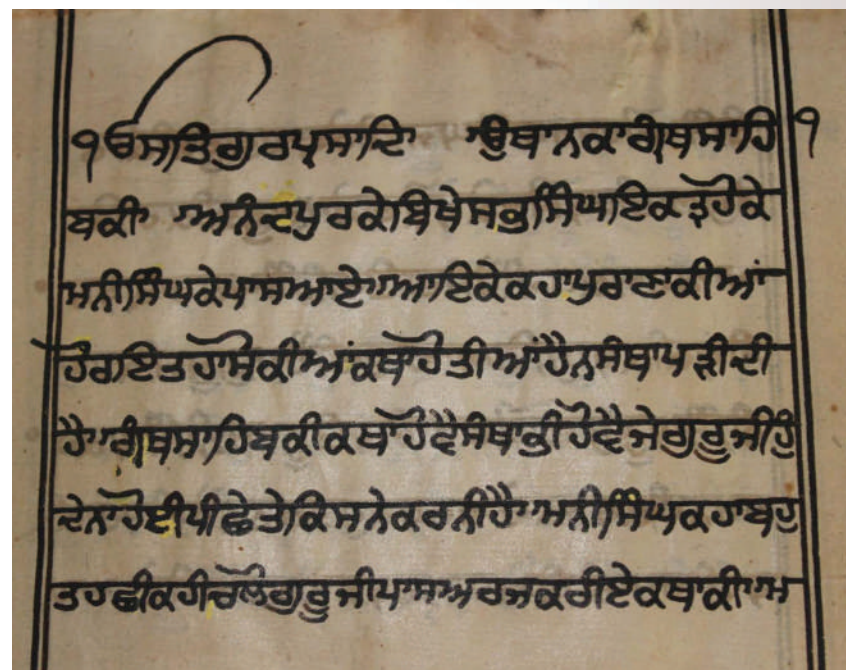 ੧ਓ ਸਤਿਗੁਰਪ੍ਰਸਾਦਿ ਉਥਾਨਕਾ ਗ੍ਰੰਥਸਾਹਿ ੧
ਬਕੀ ਅਨੰਦਪੁਰਕੇ ਬਿਖੇ ਸਭ ਸਿੰਘ ਇਕਤ੍ਰ ਹੋਕੇ
ਮਨੀਸਿੰਘਕੇਪਾਸਆਏ ਆਇਕੇਕਹਾਪੁਰਾਣਾਕੀਆਂ
ਹੋਰਇਤਹਾਸੋਕੀਆਂਕਥਾਹੋਤੀਆਂਹੈਨਸੰਥਾਪੜੀਦੀ
ਹੈ ਗ੍ਰੰਥਸਾਹਿਬਕੀਕਥਾਹੋਵੈਸੰਥਾਭੀਹੋਵੈਜੇਗੁਰੂਜੀਹੁੰ
ਦੇਨਾਹੋਈਪੀਛੇਤੇਕਿਸਨੇਕਰਨੀਹੈ ਮਨੀਸਿੰਘਕਹਾਬਹੁ
ਤਹਛੀਕਹੀਚਲੋਗੁਰੂਜੀਪਾਸਅਰਜਕਰੀਏਕਥਾਕੀ ਸ